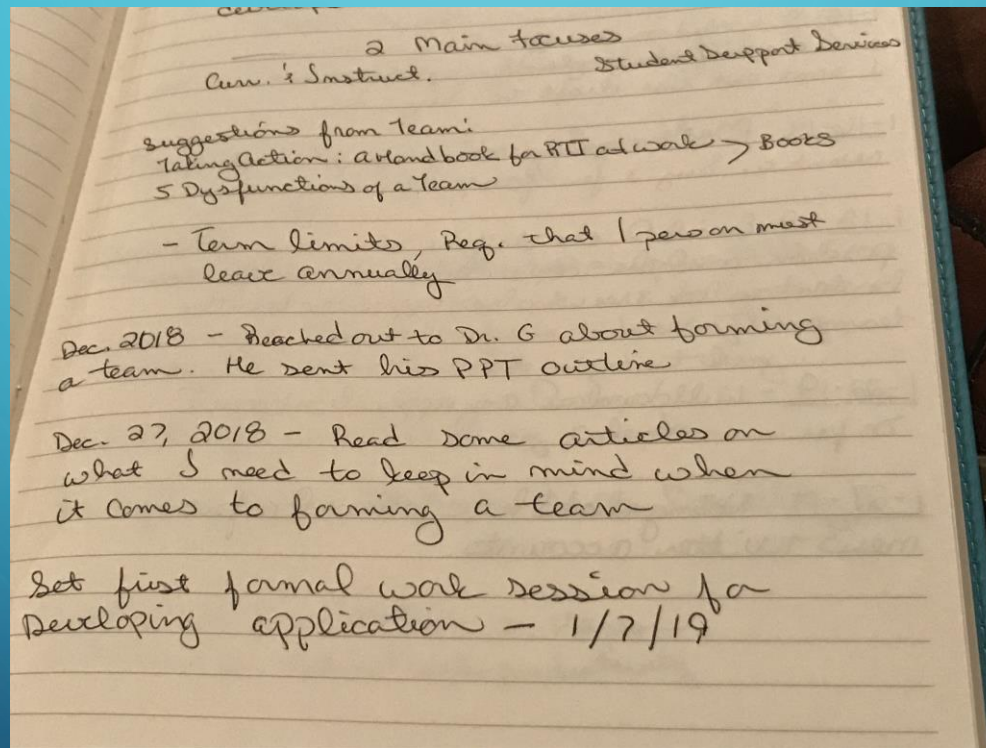 2 Main focuses
Curr. & Instruct. Student Support Services
Suggestions from Team:
Taking Action: a Handbook for RTI at work > Books
5 Dysfunctions of a Team
- Term limits, Req. that 1 person must
leave annually
Dec. 2018 - Reached out to Dr. G about forming
a team. He sent his PPT outline
Dec. 27, 2018 - Read some articles on
what I need to keep in mind when
it comes to forming a team
Set first formal work session for
Developing application - 1/7/19